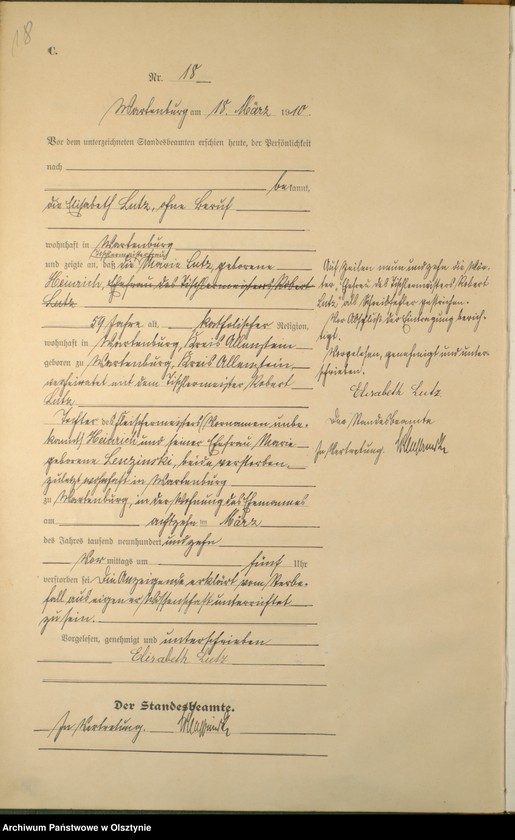 18
C.
Nr. 18
Wartenburg am 18. März 1910.
Vor dem unterzeichneten Standesbeamten erschien heute, der Persönlichkeit
nach
bekannt,
die Elisabeth Lutz, ohne Beruf
wohnhaft in Wartenburg
und zeigte an, daß die Marie Lutz, geborene
Heinrich, Ehefrau des Tischlermeisters Robert
Lutz
59 Jahre alt, katholischer Religion,
wohnhaft in Wartenburg, Kreis Allenstein
geboren zu Wartenburg, Kreis Allenstein,
verheiratet mit dem Tischlermeister Robert
Lutz
Tochter des Fleischermeisters (Vornamen unbe-
kannt) Heinrich und seiner Ehefrau Marie
geborene Lenzinski, beide verstorben,
zuletzt wohnhaft in Wartenburg
zu Wartenburg, in der Wohnung des Ehemannes
am achtzehn ten März
des Jahres tausend neunhundert und zehn
Vor mittags um fünf Uhr
verstorben sei. Die Anzeigende erklärt vom Sterbe-
fall aus eigener Wissenschaft unterrichtet
zu sein.
Vorgelesen, genehmigt und unterschrieben
Elisabeth Lutz
Der Standesbeamte.
In Vertretung.
Auf Zeilen neun und zehn die Wör-
ter „Ehefrau des Tischlermeisters Robert
Lutz" als Schreibfehler gestrichen.
Vor Abschluß der Eintragung berich-
tigt.
Vorgelesen, genehmigt und unter-
schrieben.
Elisabeth Lutz
Der Standesbeamte
In Vertretung.
Archiwum Państwowe w Olsztynie